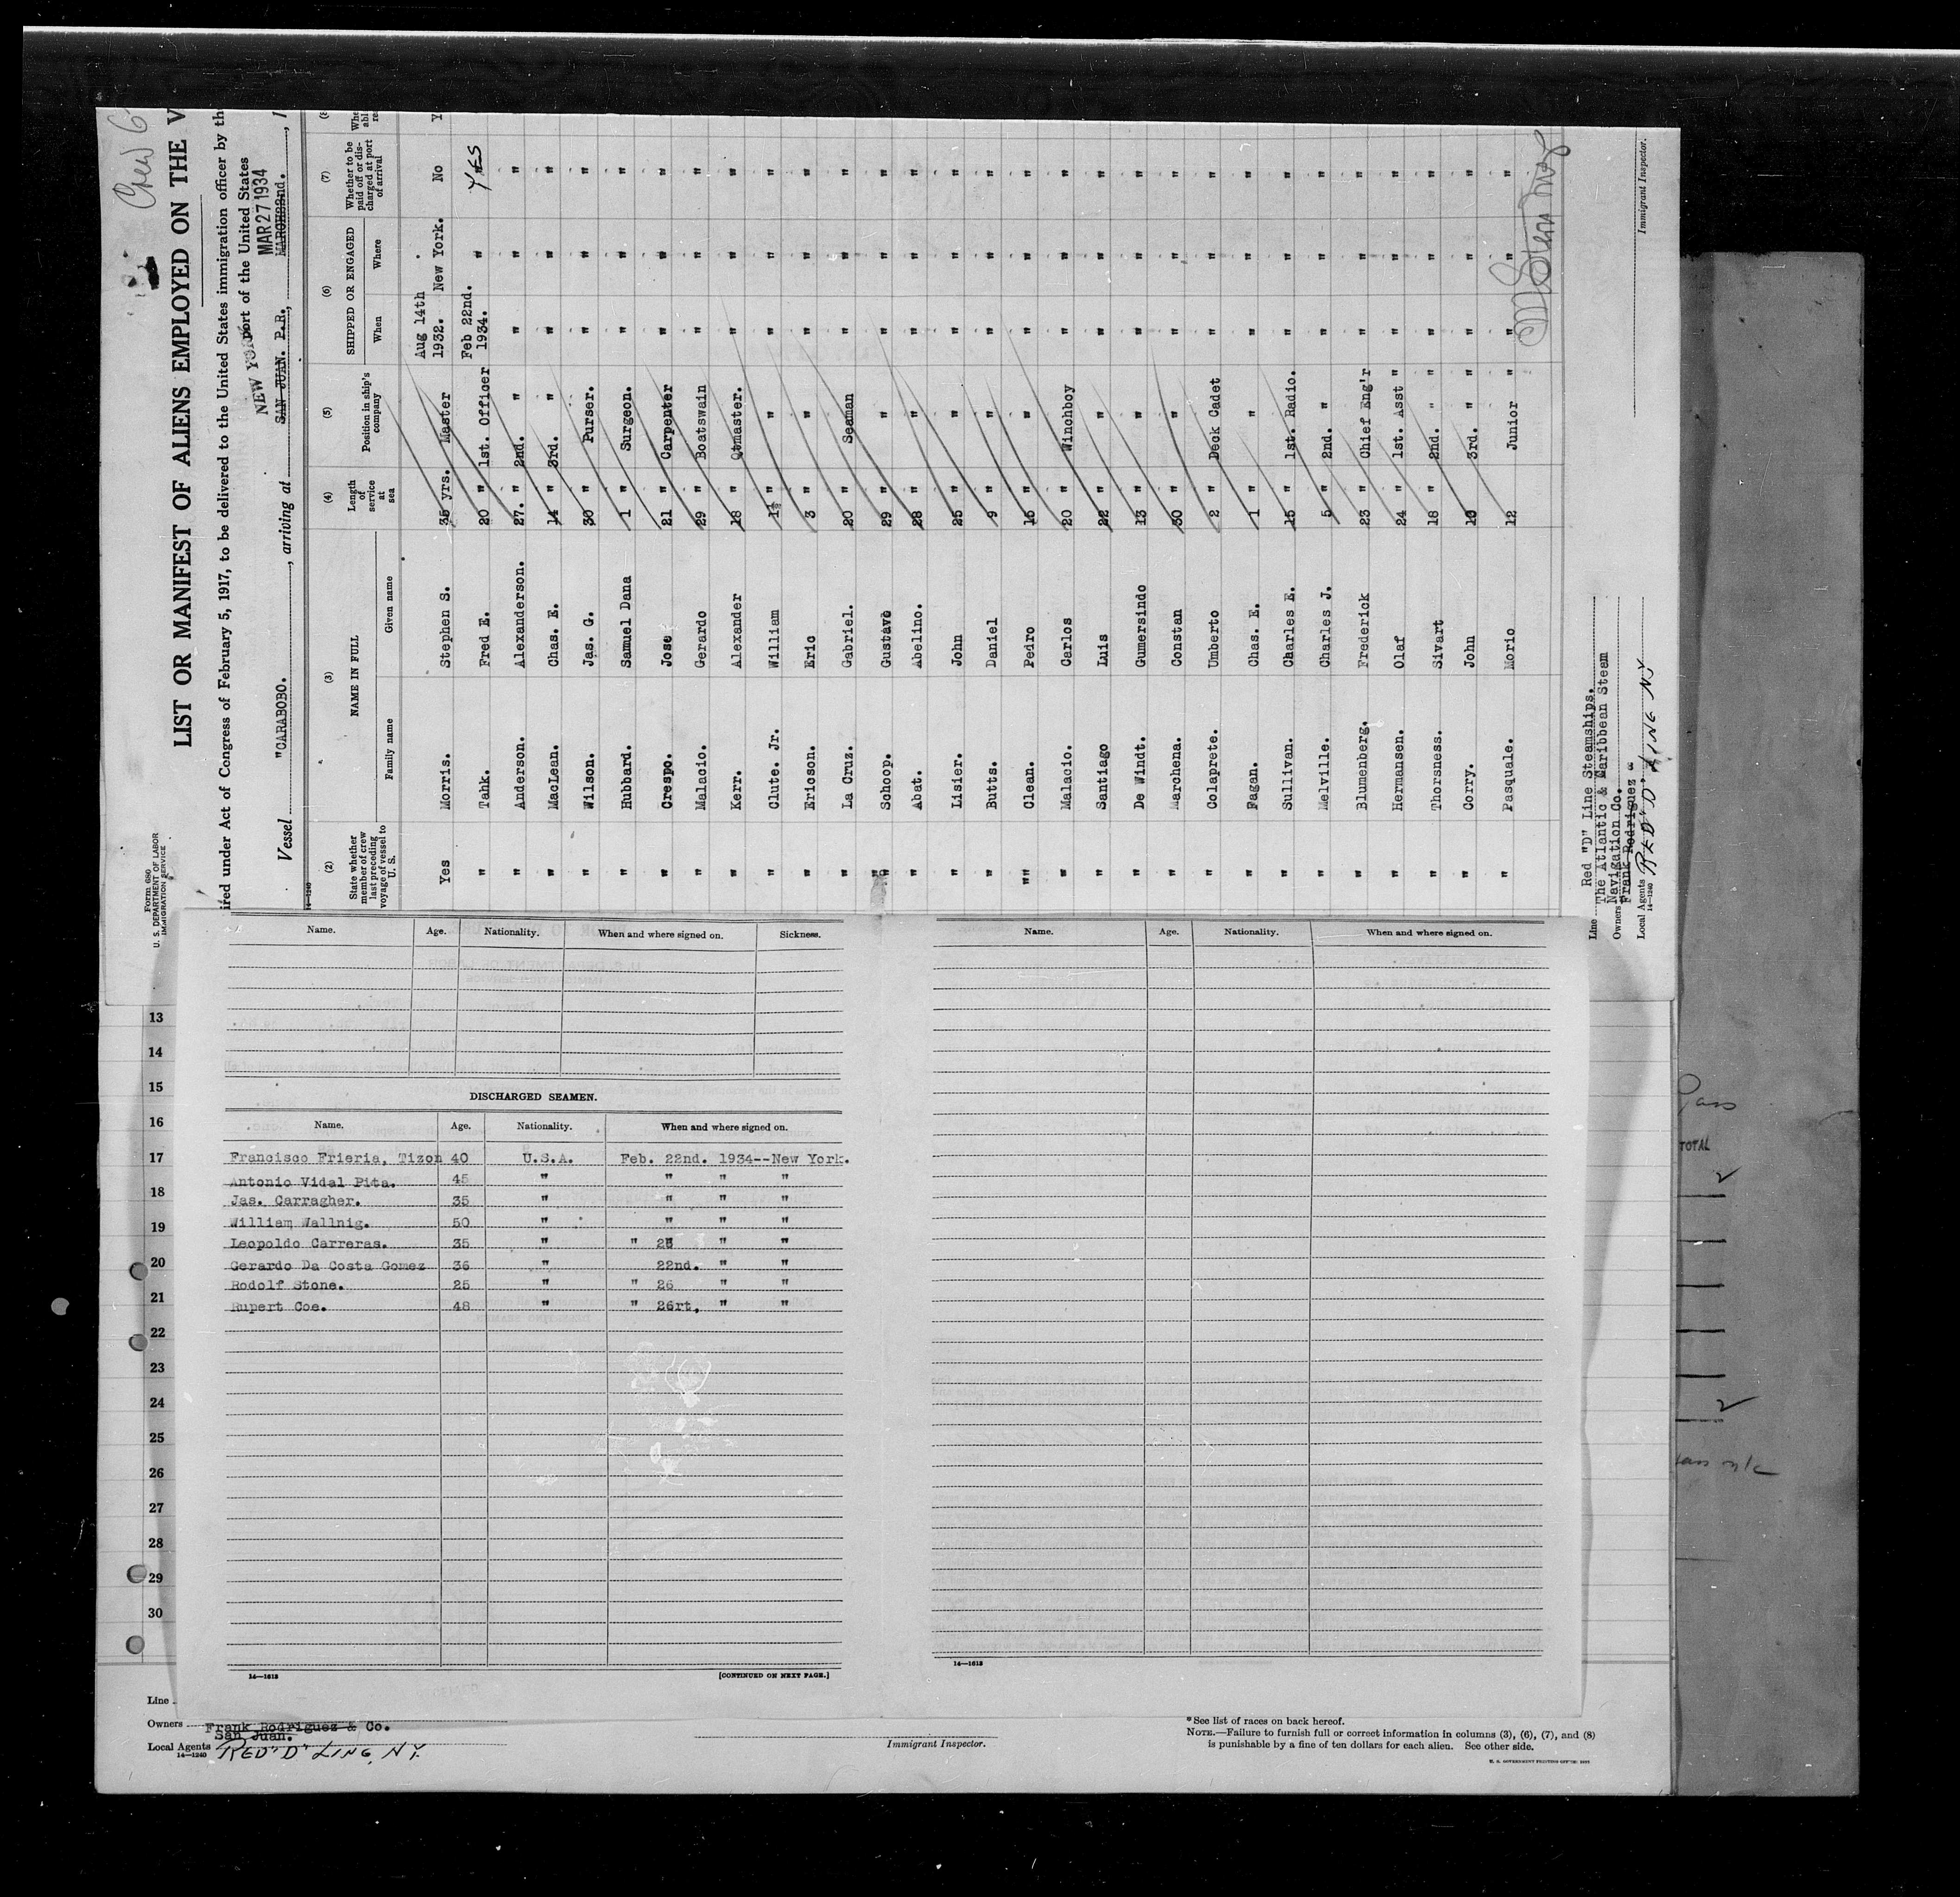 Crew
LIST OR MANIFEST OF ALIENS EMPLOYED ON THE V
Form 680
U. S. DEPARTMENT OF LABOR
IMMIGRATION SERVICE
ired under Act of Congress of February 5, 1917, to be delivered to the United States immigration officer by th
port of the United States
NEW YORK MAR 27 1934
Vessel "CARABOBO. , arriving at SAN JUAN. P.R. , MARCH 22nd. , 1
14-1240
(2) (3) (4) (5) (6) (7)
State whether member of crew last preceding voyage of vessel to U. S. NAME IN FULL Family name Given name Length of service at sea Position in ship's company SHIPPED OR ENGAGED When Where Whether to be paid off or discharged at port of arrival
Yes Morris. Stephen S. 35 yrs. Master Aug 14th 1932. New York. No Y
" Tahk. Fred E. 20 " 1st. Officer Feb 22nd. 1934. " YES
" Anderson. Alexanderson. 27. " 2nd. " " " "
" MacLean. Chas. E. 14 " 3rd. " " " "
" Wilson. Jas. G. 30 " Purser. " " "
" Hubbard. Samuel Dana 1 " Surgeon. " " "
" Crespo. Jose 21 " Carpenter " " "
" Malacio. Gerardo 29 " Boatswain " " "
" Kerr. Alexander 18 " Qtmaster. " " "
" Clute. Jr. William 1½ " " " " "
" Ericson. Eric 3 " " " " "
" La Cruz. Gabriel. 20 " Seaman " " "
" Schoop. Gustave 29 " " " " "
" Abat. Abelino. 28 " " " " "
" Lisier. John 25 " " " " "
" Butts. Daniel 9 " " " " "
"" Clean. Pedro 15 " " " " "
" Malacio. Carlos 20 " Winchboy " " "
" Santiago Luis 22 " " " " "
" De Windt. Gumersindo 13 " " " " "
" Marchena. Constan 30 " " " " "
" Colaprete. Umberto 2 " Deck Cadet " " "
" Fagan. Chas. E. 1 " " " " "
" Sullivan. Charles E. 15 " 1st. Radio. " " "
" Melville. Charles J. 5 " 2nd. " " " "
" Blumenberg. Frederick 23 " Chief Eng'r " " "
" Hermansen. Olaf 24 " 1st. Asst " " " "
" Thorsness. Sivart 18 " 2nd. " " " " "
" Corry. John 10 " 3rd. " " " " "
" Pasquale. Morio 12 Junior " " " "
Line Red "D" Line Steamships.
The Atlantic & Caribbean Steam
Owners Navigation Co.
Frank Rodriguez &
Local Agents RED "D" LINE NY
14-1240
Immigrant Inspector.
Name. Age. Nationality. When and where signed on. Sickness.
DISCHARGED SEAMEN.
Name. Age. Nationality. When and where signed on.
Francisco Frieria, Tizon 40 U.S.A. Feb. 22nd. 1934--New York.
Antonio Vidal Pita. 45 " " " "
Jas. Carragher. 35 " " " "
William Wallnig. 50 " " " "
Leopoldo Carreras. 35 " " 23 " "
Gerardo Da Costa Gomez 36 " 22nd. " "
Rodolf Stone. 25 " " 26 " "
Rupert Coe. 48 " " 26rt, " "
14—1613 [CONTINUED ON NEXT PAGE.]
Name. Age. Nationality. When and where signed on.
14—1613
13
14
15
16
17
18
19
20
21
22
23
24
25
26
27
28
29
30
Pass
TOTAL
2
2
Line
Owners Frank Rodriguez & Co.
San Juan.
Local Agents RED "D" LINE, N.Y.
14—1240
Immigrant Inspector.
* See list of races on back hereof.
NOTE.—Failure to furnish full or correct information in columns (3), (6), (7), and (8)
is punishable by a fine of ten dollars for each alien. See other side.